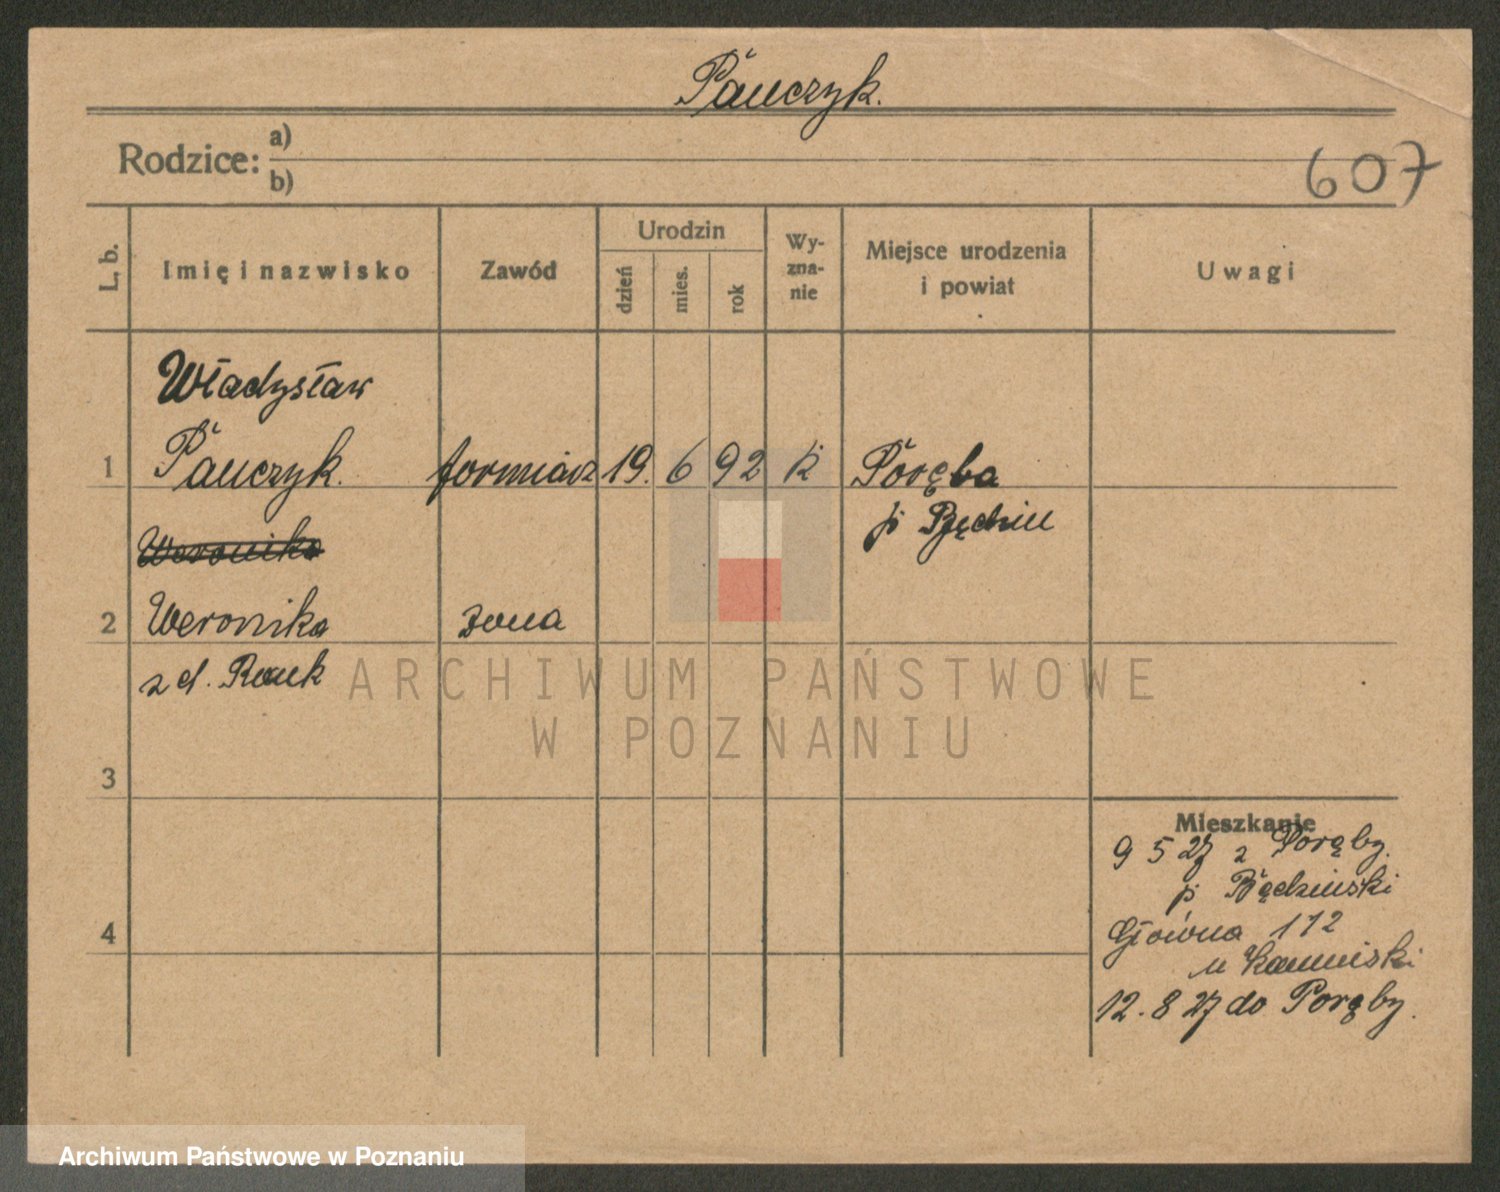 Pauczyk.
Rodzice: a)
b)
607
L. b.
Imię i nazwisko
Zawód
Urodzin
dzień
mies.
rok
Wy-
zna-
nie
Miejsce urodzenia
i powiat
Uwagi
Władysław
1 Pauczyk. formiarz 19. 6 92 K Poręba
p Będzin
Weronika
2 Weronika żona
z d. Rauk
3
4
Mieszkanie
9 5 27 z Poręby.
p Będziński
Główna 112
u Kamiński
12. 8 27 do Poręby.
ARCHIWUM PAŃSTWOWE
W POZNANIU
Archiwum Państwowe w Poznaniu